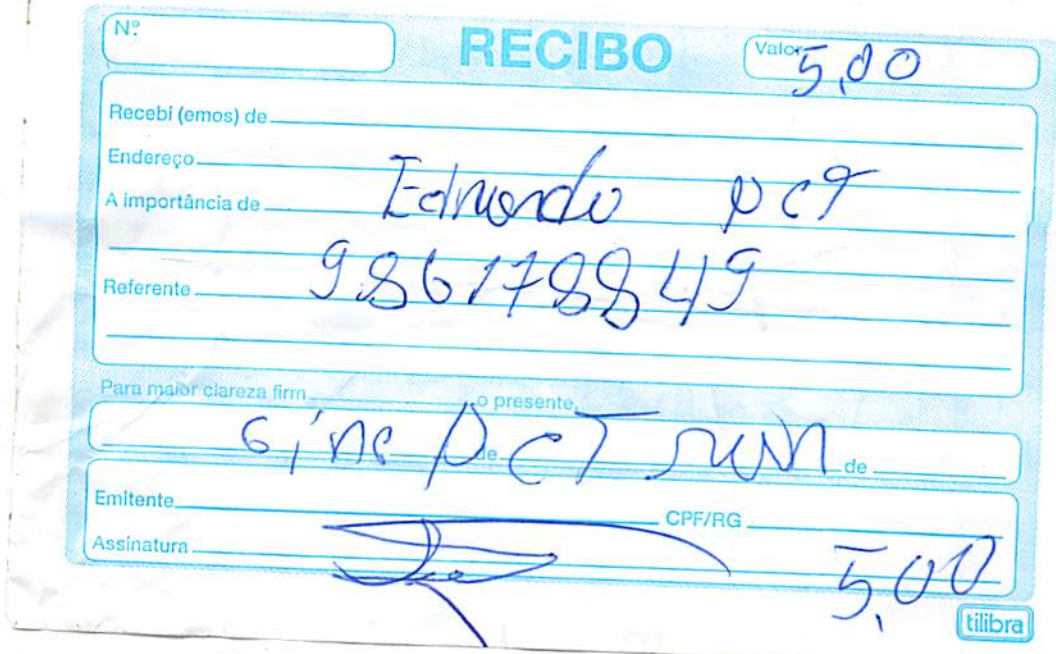 Nº
RECIBO
Valor 5,00
Recebi (emos) de
Endereço
Edmundo pct
A importância de
986178849
Referente
Para maior clareza firm o presente
de de
Emitente CPF/RG
Assinatura
5,00
tilibra